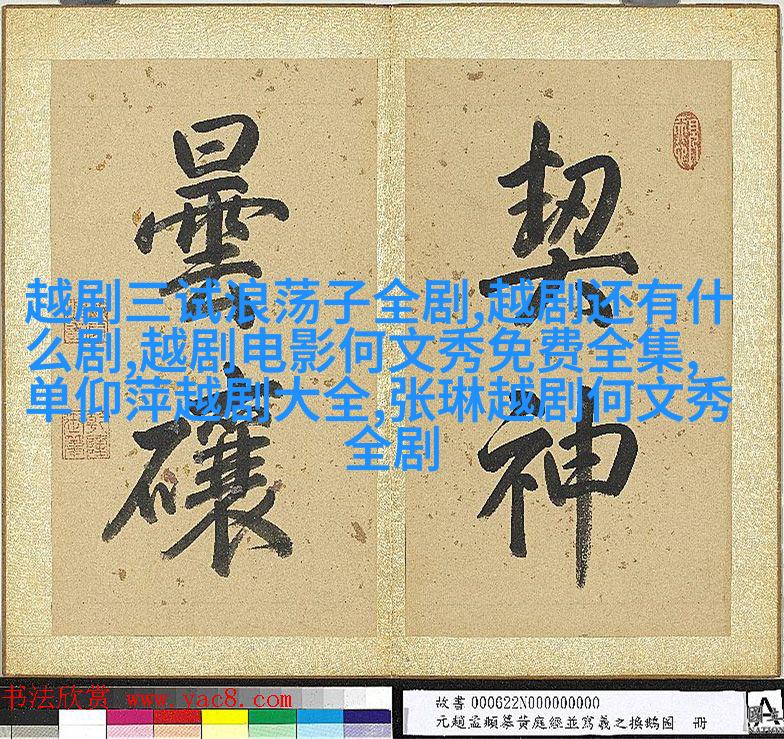 越剧三试浪荡子全剧,越剧还有什
么剧,越剧电影何文秀免费全集,
单仰萍越剧大全,张琳越剧何文秀
全剧
契神
曇𥗝
书法欣赏 www.yac8.com
故書000622N000000000
元趙孟頫摹黃庭經並寫羲之換鵝圖 冊